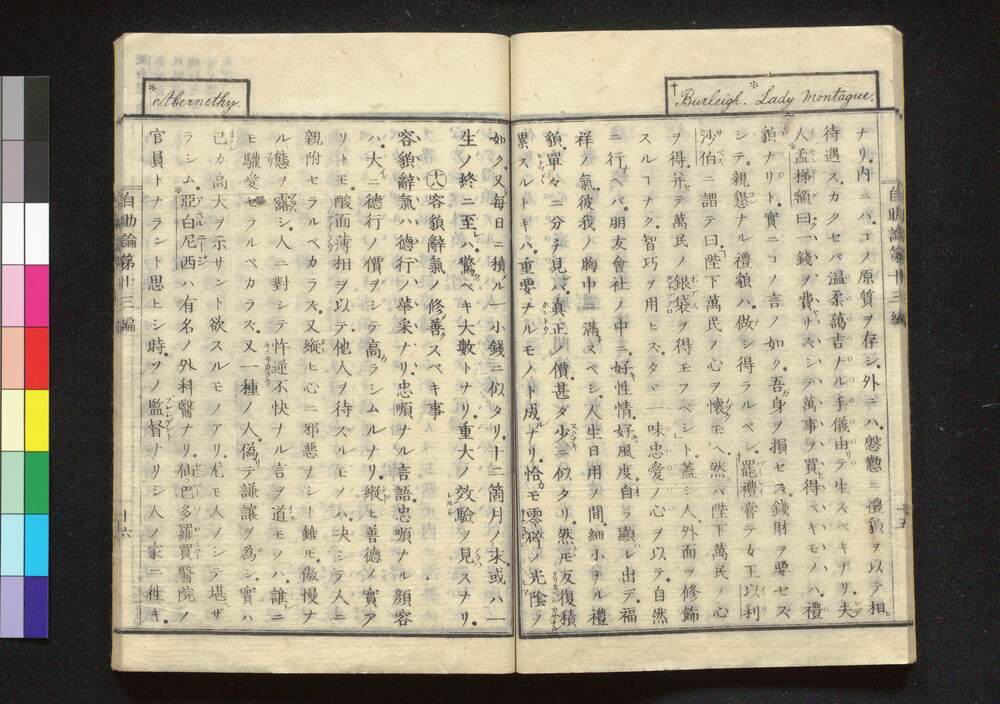 †Burleigh. *Lady Montague.
ナリ。内ニハ、コノ原質ヲ存シ。外ニハ、慇懃ニ禮貌ヲ以テ相
待遇スカクセバ溫柔藹吉ナル手儀由テ生スベキナリ。夫
人孟梯額曰ク。一錢ヲ費サスシテ萬事ヲ買得ベキモノハ、禮
貌ナリト。實ニコノ言ノ如ク。吾身ヲ損セス。錢財ヲ要セス
シテ。親懇ナル禮貌ハ、做シ得ラルベシ。罷禮嘗テ女王以利
沙伯ニ謂テ曰ク。陛下萬民ノ心ヲ懷モヘ。然ハ陛下萬民ノ心
ヲ得。并テ萬民ノ銀袋ヲ得モフベシト。蓋シ人外面ヲ修飾
スルコナク。智巧ヲ用ヒス。タヾ一味忠愛ノ心ヲ以テ。自然
ニ行ヘバ。朋友會社ノ中ニ。好性情。好風度。自ラ顯レ出テ。福
祥ノ氣。彼我ノ胸中ニ滿ヌベシ。人生日用ノ間。細小ナル禮
貌單々ニ分チ見バ、真正ノ價甚タ少ニ似タリ。然モ反復積
累スルトキハ、重要ナルモノト成ルナリ。恰モ零碎ノ光陰ノ
自助論第十三編
十五
*Abernethy.
如ク。又毎日ニ積ル一小錢ニ似タリ。十二箇月ノ末。或ハ一
生ノ終ニ至ハ、驚クベキ大數トナリ。重大ノ效驗ヲ見スナリ。
十八 容貌辭氣ノ修善スベキ事
容貌辭氣ハ德行ノ華采ナリ。忠順ナル言語。忠順ナル顏容
ハ、大ニ德行ノ價ヲシテ高カラシムルナリ。縱ヒ善德ノ實ア
リトモ。酸面薄相ヲ以テ他人ヲ待スルモノハ、決シテ人ニ
親附セラルベカラス。又縱ヒ心ニ邪惡ナシト雖モ。傲慢ナ
ル態ヲ露シ。人ニ對シテ忤逆不快ナル言ヲ道モノハ、誰ニ
モ驩愛セラルベカラス。又一種ノ人。僞テ謙讓ヲ為シ。實ハ
己カ高大ヲ示サント欲スルモノアリ。尤モ人ヲシテ堪ザ
ラシム。亞白尼西ハ有名ノ外科醫ナリ。仙巴多羅買醫院ノ
官員トナラント思ヒシ時。ソノ監督ナリシ人ノ家ニ徃キ。
自助論第十三編
十六